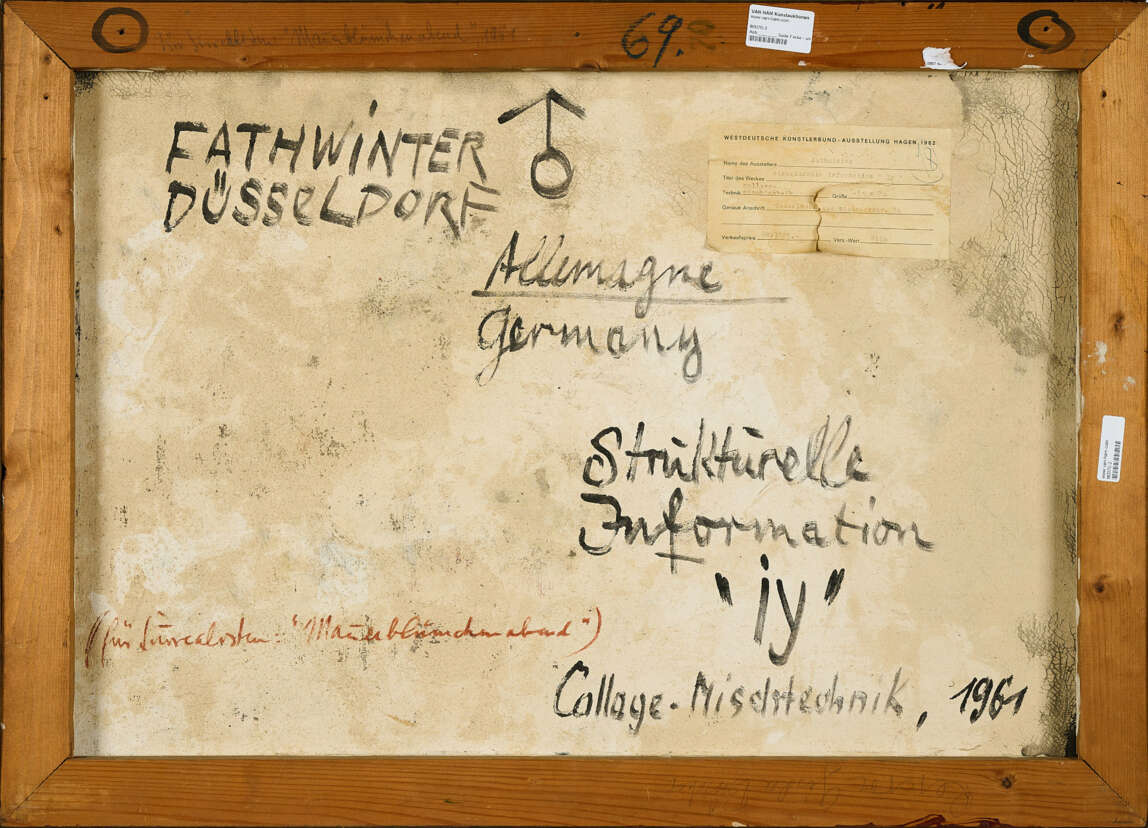 für Surrealisten "Mauerblümchenabend" 1961
69.
VAN HAM Kunstauktionen
www.van-ham.com
FATHWINTER
DÜSSELDORF
WESTDEUTSCHE KÜNSTLERBUND-AUSSTELLUNG HAGEN 1962
Name des Ausstellers
Titel des Werkes
Technik
Größe
Genaue Anschrift
Verkaufspreis
Vers.-Wert
Allemagne
Germany
Strukturelle
Information
"iy"
(für Surrealisten "Mauerblümchenabend")
Collage-Mischtechnik, 1961